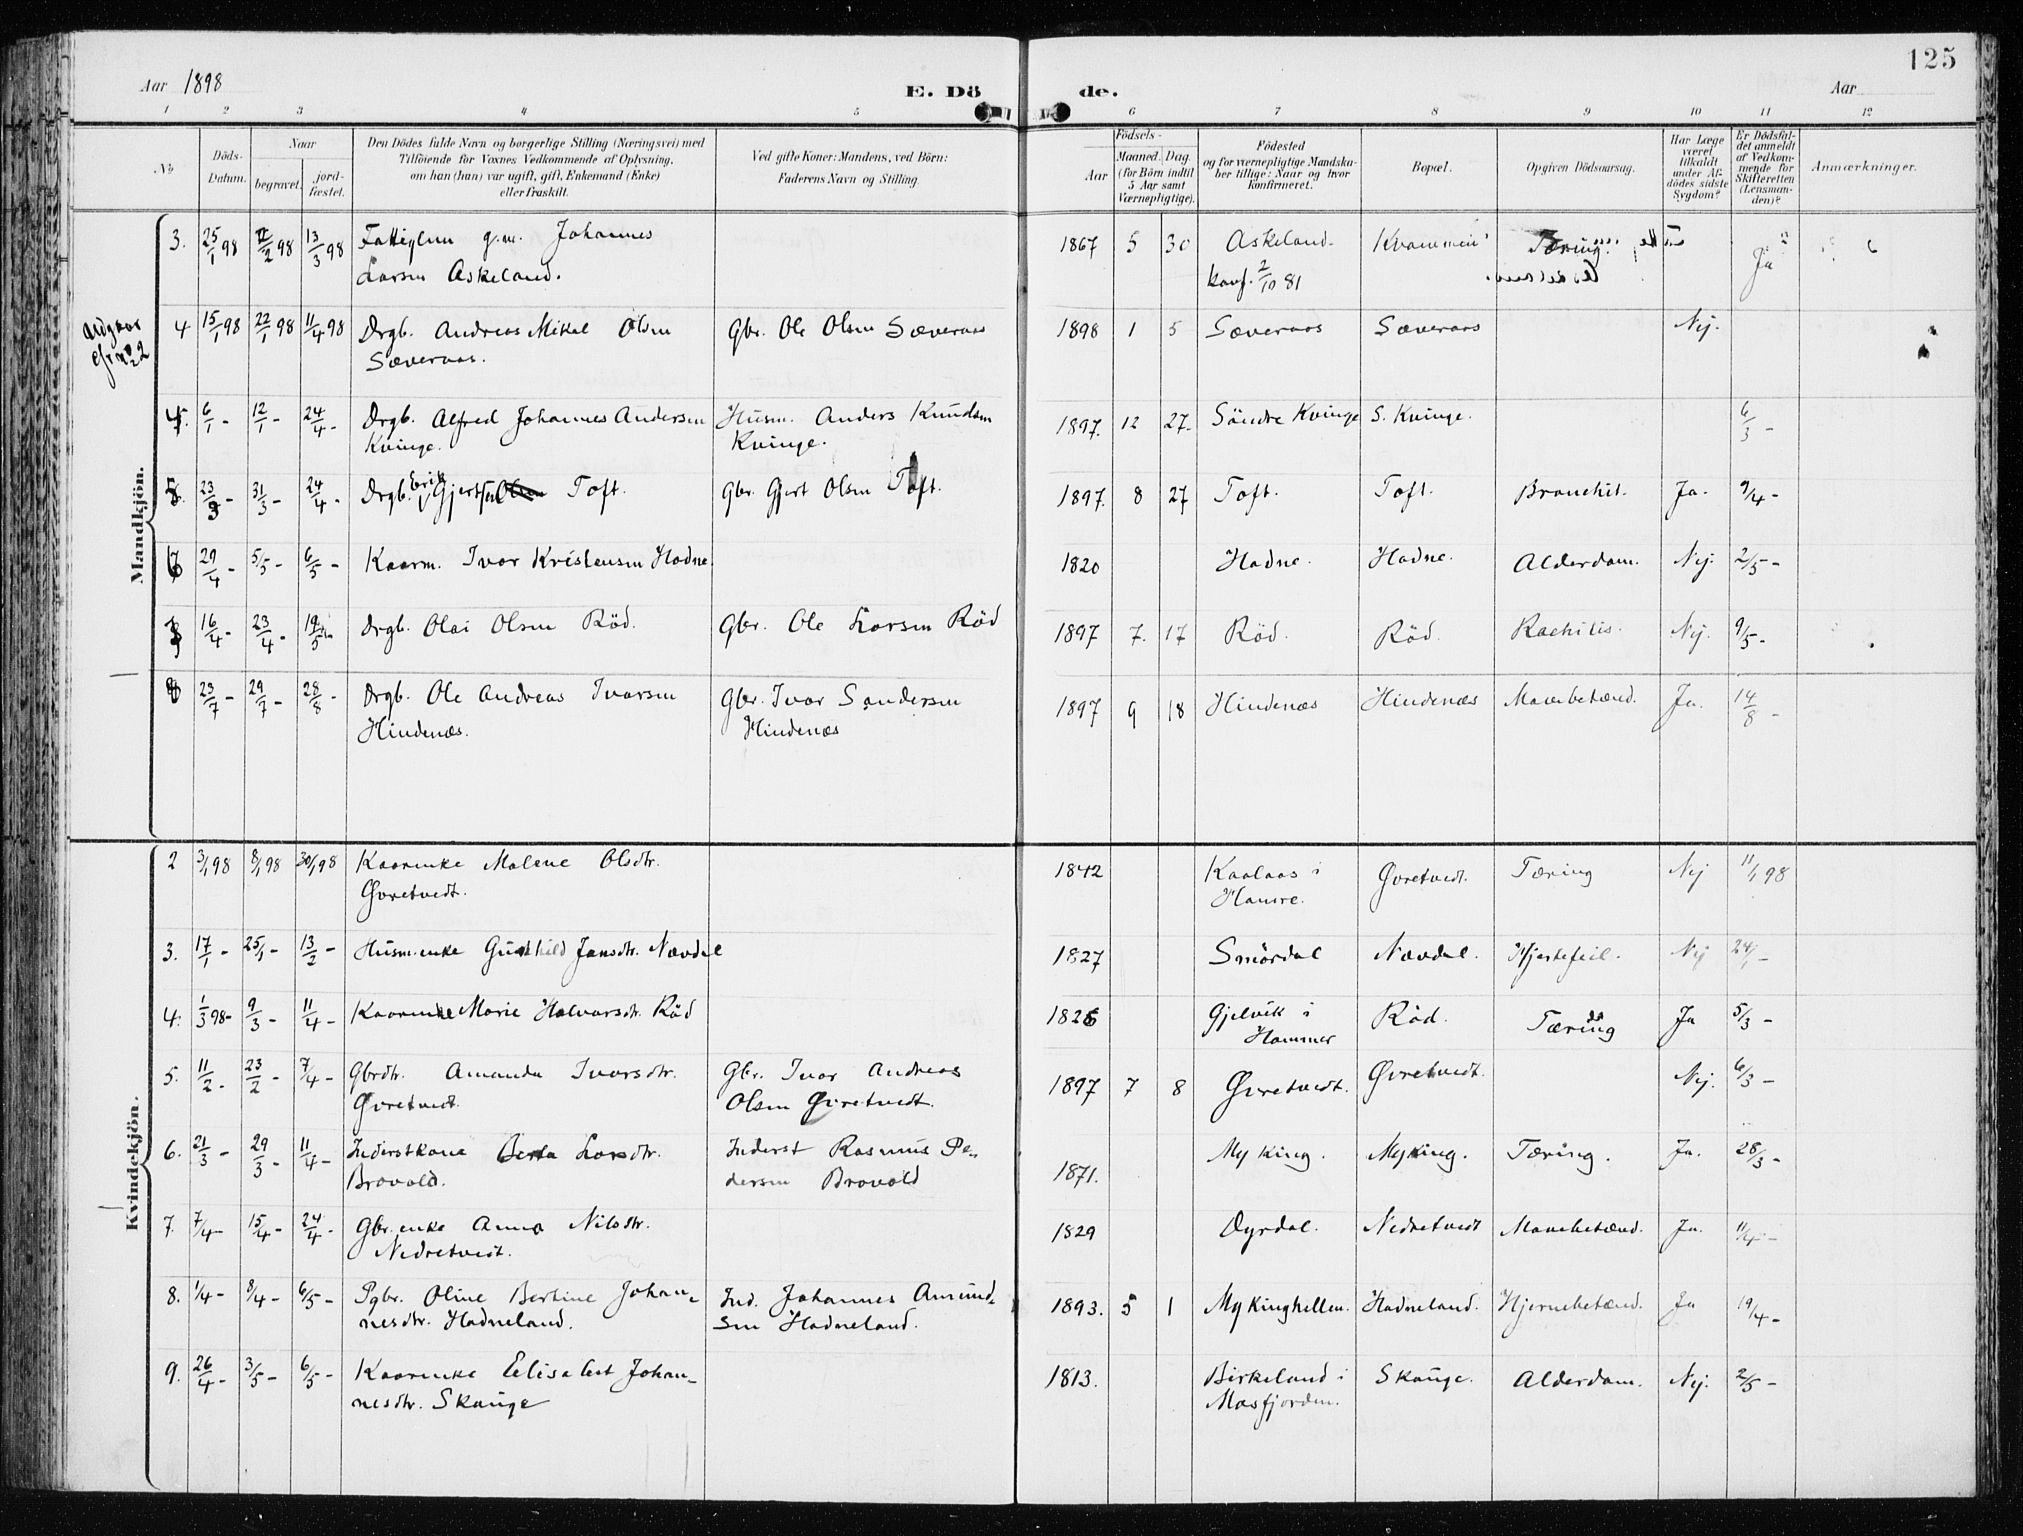 125
Aar 1898 E. Dö de. Aar
1 2 3 4 5 6 7 8 9 10 11 12
No
Döds-
Datum.
Naar
begravet.
jord-
fæstet.
Den Dödes fulde Navn og borgerlige Stilling (Næringsvei) med
Tilföiende for Voxnes Vedkommende af Oplysning,
om han (hun) var ugift, gift, Enkemand (Enke)
eller fraskilt.
Ved gifte Koner: Mandens, ved Börn:
Faderens Navn og Stilling.
Födsels-
Aar
Maaned.
Dag
(for Börn indtil
5 Aar samt
Værnepligtige).
Födested
og for værnepligtige Mandska-
ber tillige: Naar og hvor
konfirmeret.
Bopæl.
Opgiven Dödsaarsag.
Har Læge
været
tilkaldt
under Af-
dödes sidste
Sygdom?
Er Dödsfal-
det anmeldt
af Vedkom-
mende for
Skifteretten
(Lensman-
den)?
Anmærkninger.
Mandkjön.
3. 25/1 98 12/2 98 13/3 98 Fattiglem g.m. Johannes 1867 5 30 Askeland. Kvammen Tæring. Ja
Larsen Askeland. konf. 2/10 81
4 15/1 98 22/1 98 11/4 98 Drgb. Andreas Mikal Olsen Gbr. Ole Olsen Sæveraas 1898 1 5 Sæveraas Sæveraas Nej.
Sæveraas.
4. 6/1 - 12/1 - 24/4 - Drgb. Alfred Johannes Andersen Husm. Anders Knudsen 1897. 12 27. Söndre Kvinge S. Kvinge. 6/3 -
Kvinge. Kvinge.
5. 23/3 - 31/3 - 24/4 - Drgb. Erik Gjertsen Toft. Gbr. Gjert Olsen Toft. 1897. 8 27 Toft. Toft. Bronchit. Ja. 9/4 -
6 29/4 - 5/5 - 6/5 - Kaarm. Ivar Kristensen Hadne. 1820 Hadne. Hadne. Alderdom. Nej. 2/5 -
7 16/4 - 23/4 - 19/5 - Drgb. Olai Olsen Röd. Gbr. Ole Larsen Röd 1897 7. 17 Röd. Röd. Rachitis. Nej. 9/5 -
8 23/7 - 29/7 - 28/8 - Drgb. Ole Andreas Ivarsen Gbr. Ivar Sandersen 1897 9 18 Hindenæs Hindenæs Mavebetænd. Ja. 14/8 -
Hindenæs. Hindenæs
Kvindekjön.
2 3/1 98 8/1 98 30/1 98 Kaarenke Malene Olsdtr. 1842 Kaalaas i Øvretvedt. Tæring Nej 11/1 98
Øvretvedt. Hamre.
3. 17/1 - 25/1 - 13/2 - Husm.enke Gunhild Jansdtr. Nævdal 1827 Smördal Nævdal. Hjertefeil. Nej 24/1 -
4. 1/3 98- 9/3 - 11/4 - Kaarenke Marie Halvorsdtr. Röd 1826 Gjelvik i Röd. Tæring Ja 5/3 -
Hammer
5. 11/2 - 23/2 - 7/4 - Gbrdtr. Amanda Ivarsdtr. Gbr. Ivar Andreas 1897 7 8 Øvretvedt. Øvretvedt. Nej. 6/3 -
Øvretvedt. Olsen Øvretvedt.
6. 21/3 - 29/3 - 11/4 - Inderstkone Berta Larsdtr. Inderst Rasmus Pe- 1871. Myking. Myking. Tæring. Ja. 28/3 -
Brovold. dersen Brovold
7. 7/4 - 15/4 - 24/4 - Gbr.enke Anna Nilsdtr. 1829 Dyrdal. Nedretvedt Mavebetænd. Ja. 11/4 -
Nedretvedt.
8. 1/4 - 8/4 - 6/5 - Pgbr. Oline Bertine Johan- Ind. Johannes Amund- 1893. 5 1 Mykinghellen. Hadneland. Hjernebetænd. Ja 19/4 -
nesdtr. Hadneland. sen Hadneland.
9. 26/4 - 3/5 - 6/5 - Kaarenke Elisabet Johan- 1813. Birkeland i Skauge. Alderdom. Nej. 2/5 -
nesdtr. Skauge Masfjorden.